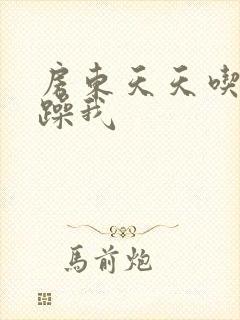 房东天天喫
躁我
馬前炮